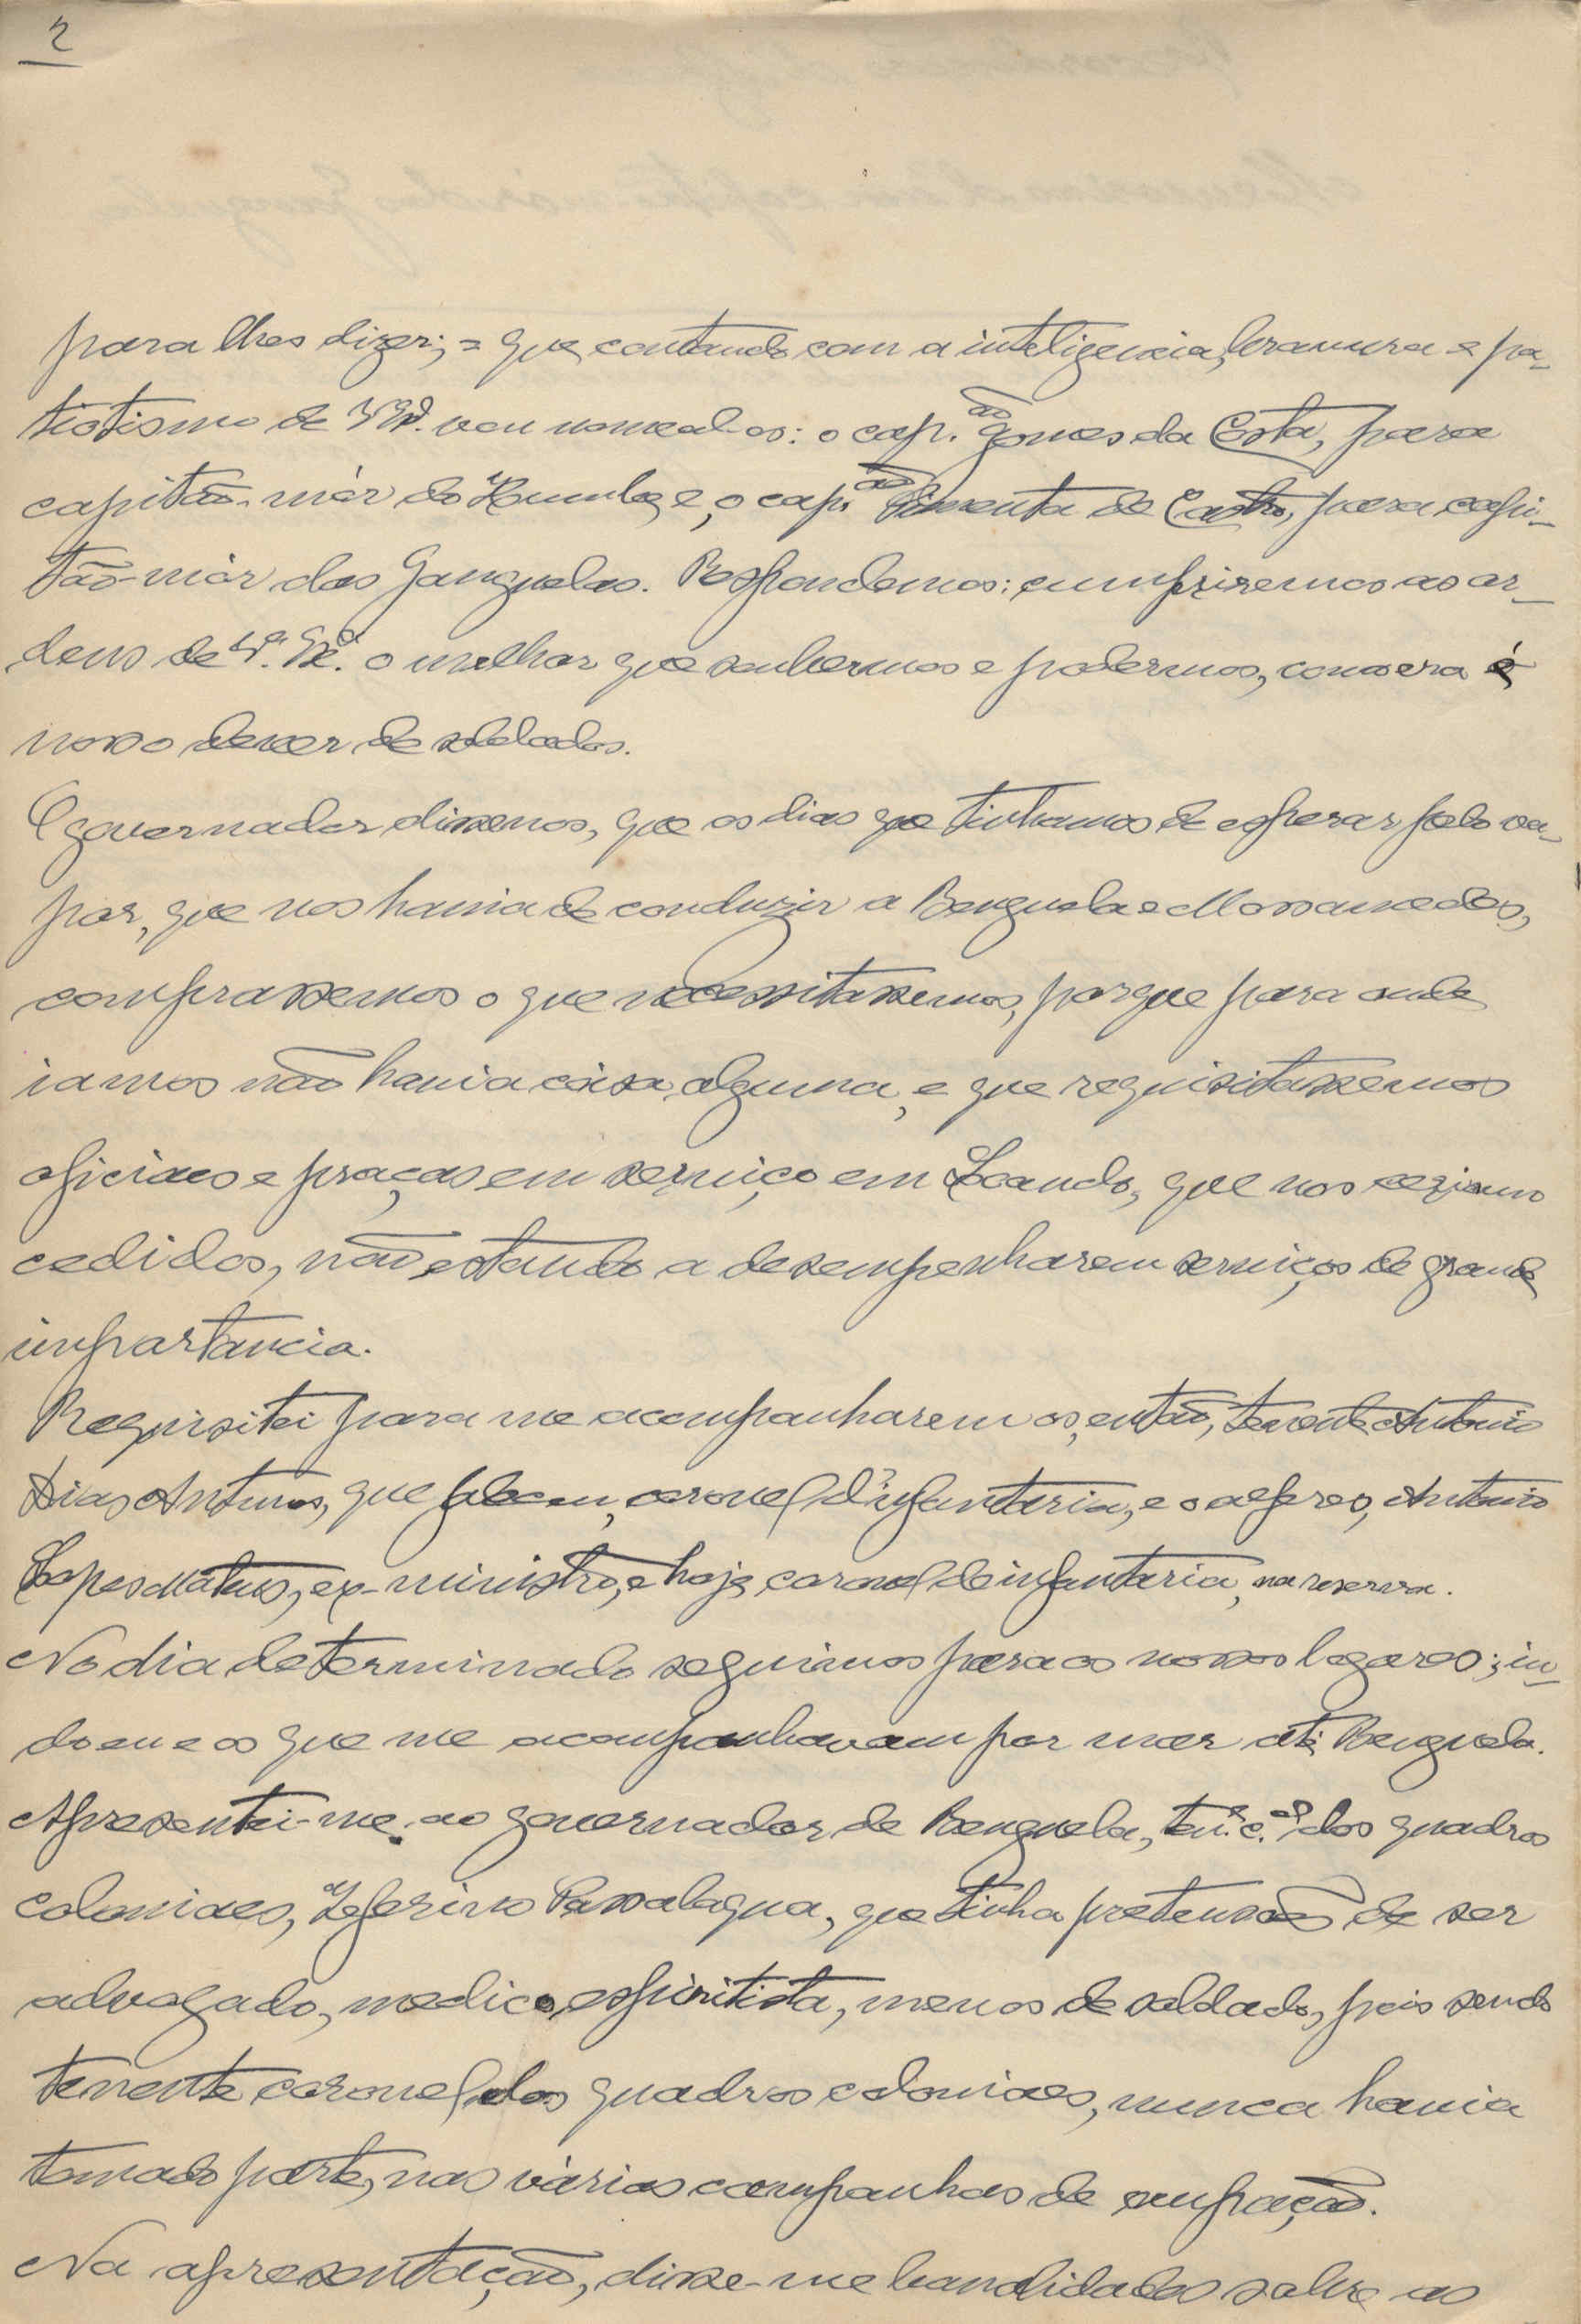 2
para lhes dizer; = que, contando com a inteligencia, bravura e pa-
triotismo de V. Ex.as vou nomeal-os: o cap.ão Gomes da Costa, para
capitão-mór do Humbe, e, o cap.ão Pimenta de Castro, para capi-
tão-mór dos Ganguelas. Respondemos: cumpriremos as or-
dens de V.a Ex.a o melhor que soubermos e podermos, como era é
nosso dever de soldados.
O governador disse-nos, que os dias que tinhamos de esperar pelo va-
por, que nos havia de conduzir a Benguela e Mossamedes,
comprassemos o que necessitassemos, porque para onde
iamos não havia coisa alguma, e que requisitassemos
oficiaes e praças em serviço em Loanda, que nos seriam
cedidos, não estando a desempenharem serviços de grande
importancia.
Requisitei para me acompanharem os, então, tenente Antonio
Dias Antunes, que faleceu, coronel d'infantaria, e o alferes, Antonio
Lopes Mateus, ex-ministro, e hoje coronel de infantaria, na reserva.
No dia determinado seguimos para os nossos logares; in-
do eu e os que me acompanhavam por mar até Benguela.
Apresentei-me ao governador de Benguela, ten.e c.el dos quadros
coloniaes, Zeferino Passalaqua, que tinha pretensões de ser
advogado, medico, espiritista, menos de soldado, pois sendo
tenente coronel dos quadros coloniaes, nunca havia
tomado parte, nas várias campanhas de ocupação.
Na apresentação, disse-me banalidades sobre as